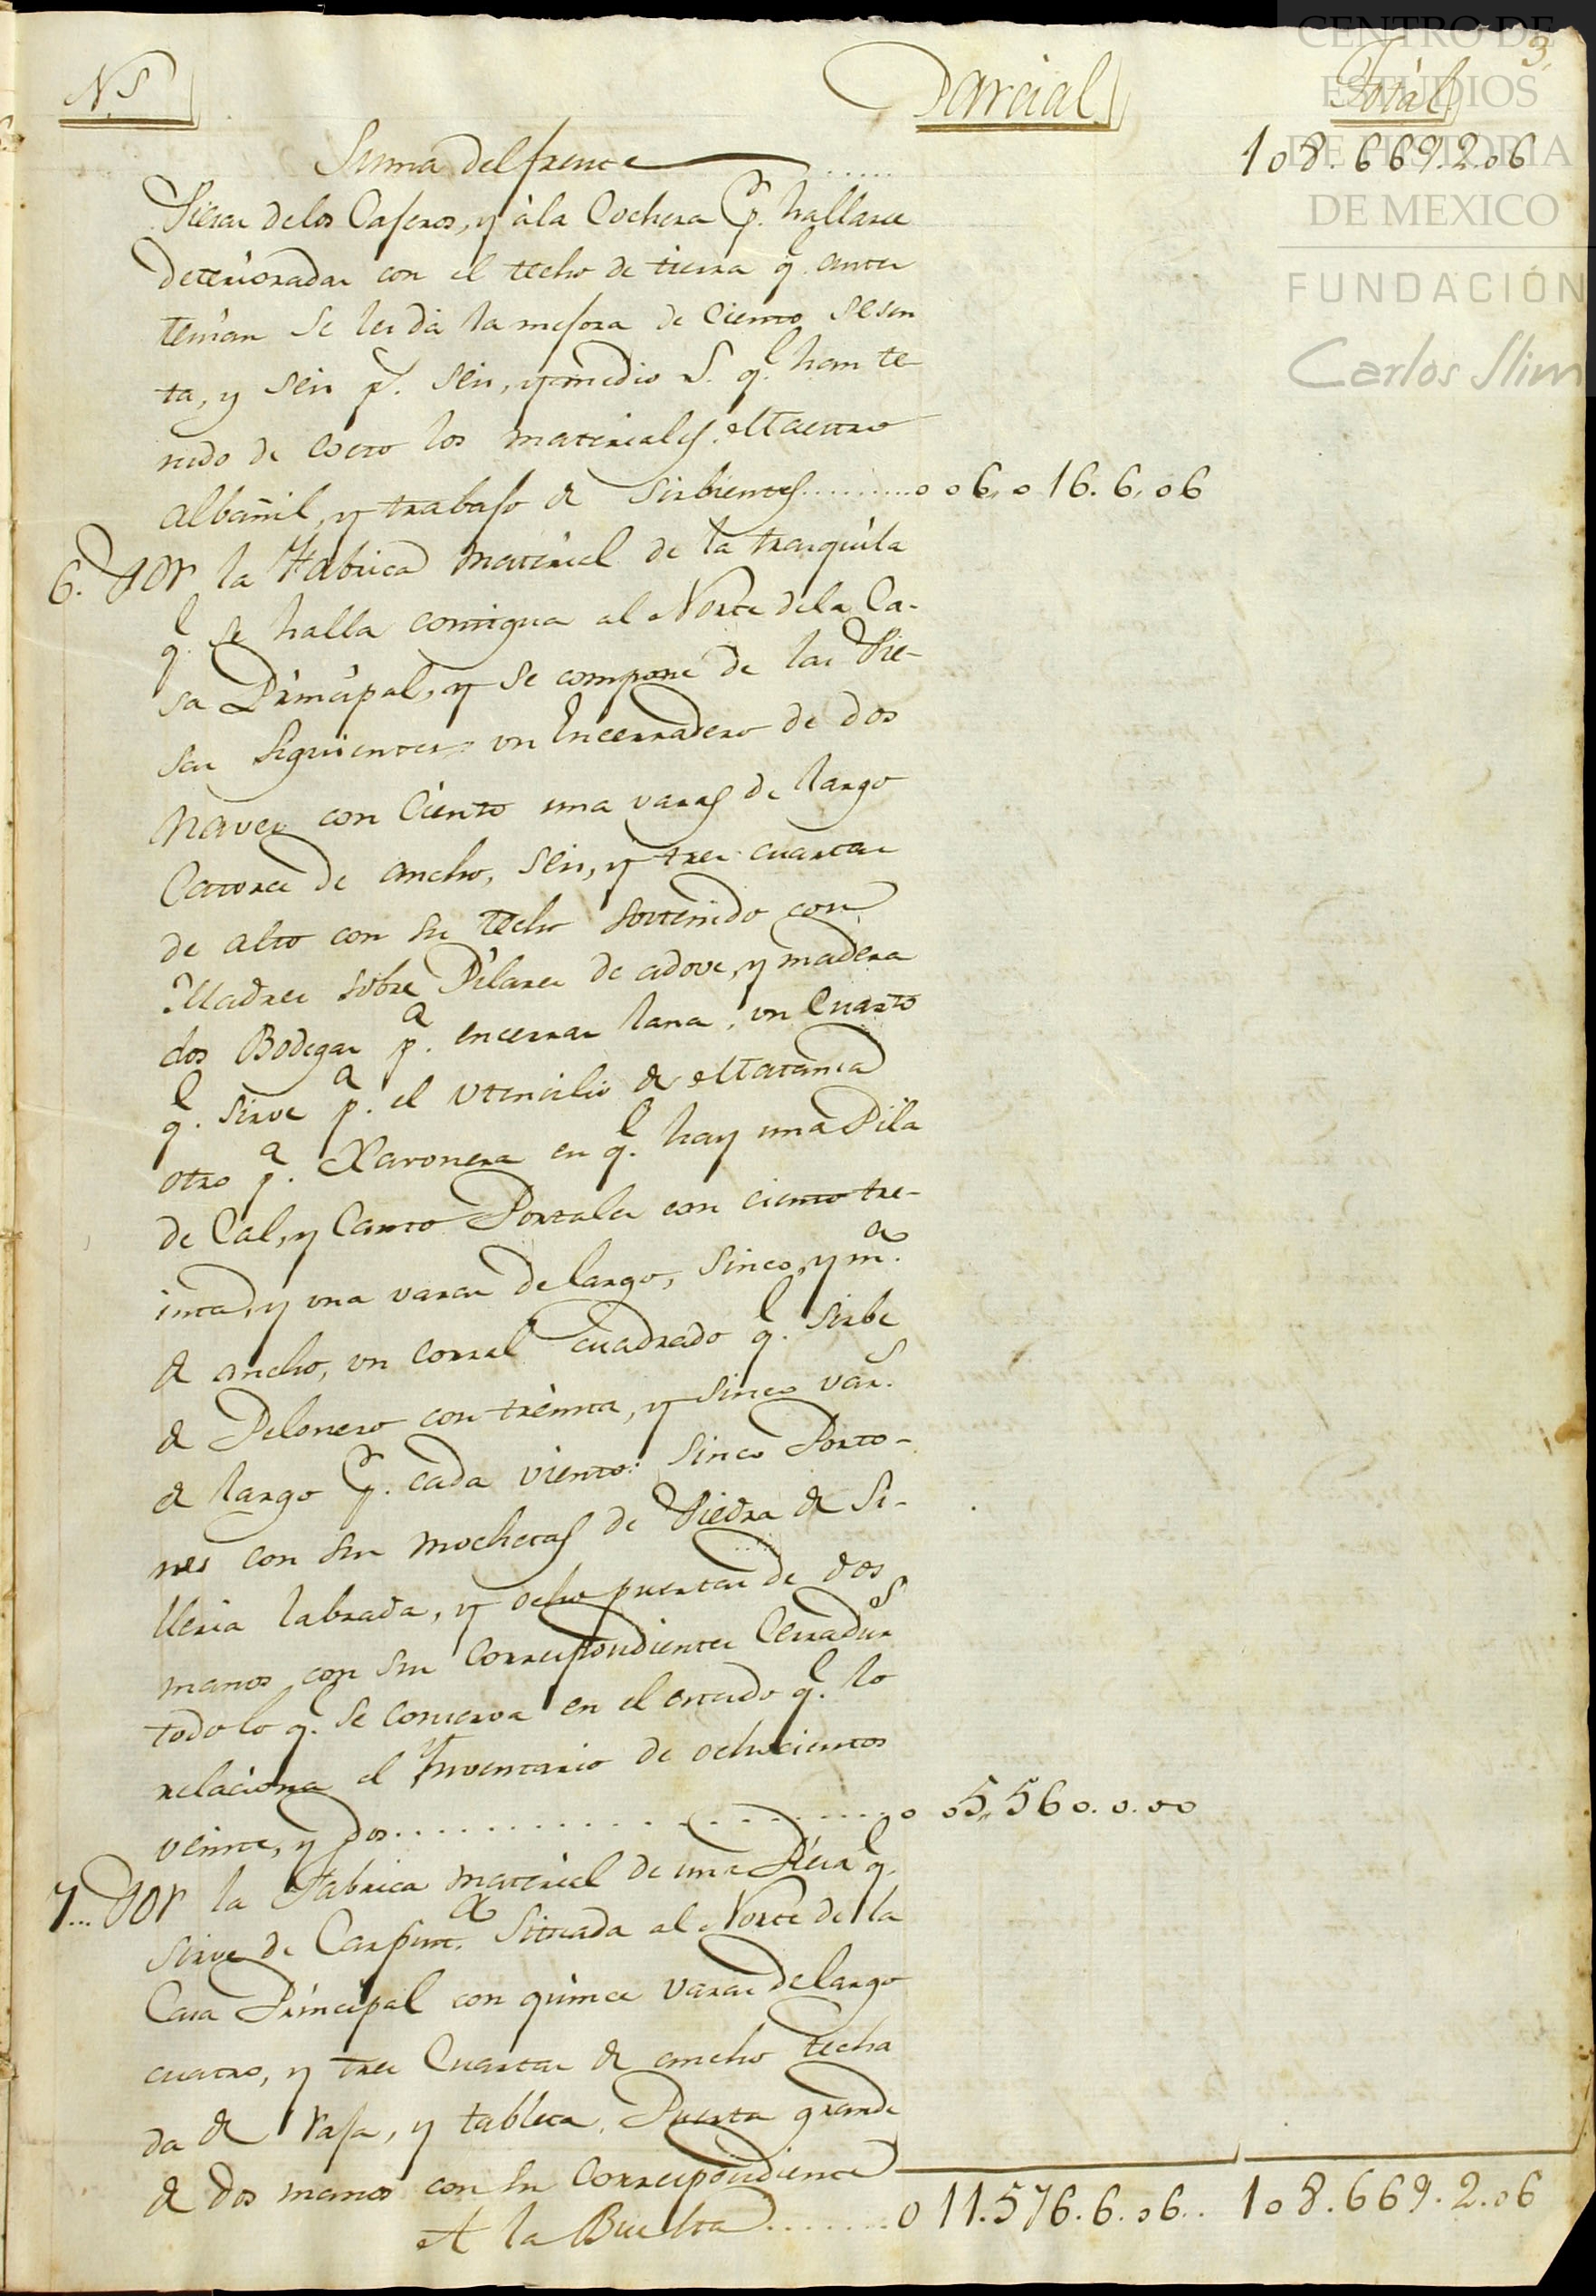 CENTRO DE
ESTUDIOS
DE HISTORIA
DE MEXICO
FUNDACIÓN
Carlos Slim
3,
N.s Parcial Total.
Suma del frente ...... 108.669.2.06
Piesas de los Caseros, y à la Cochera pr. hallarse
deterioradas con el techo de tierra q.l antes
tenian se les dá la mejora de Ciento sesen
ta, y seis p.s seis, y medio r.s q.e han te
nido de costo los materiales, Maestro
Albañil, y trabajo de Sirbientes.......... 006,016.6.06
6. Por la Fabrica material de la trasquila
q.e se halla contigua al Norte dela Ca-
sa Principal, y se compone de las Pie-
sas Siguientes = un Encerradero de dos
Naves con Ciento una varas de largo
Catorce de ancho, seis, y tres cuartas
de alto con su techo sostenido con
Madres sobre Pilares de adove, y madera
dos Bodegas p.a encerrar lana, un Cuarto
q.e sirve p.a el Utencilio de Matansa
otro p.a Xavonera en q.e hay una Pila
de Cal, y Canto Portales con ciento tre-
inta, y una varas de largo, sinco, y m.a
de ancho, un corral cuadrado q.e sirbe
de Pelonero con treinta, y sinco var.s
de largo p.r cada viento: sinco Porto-
nes con sus mochetas de Piedra de Si-
lleria labrada, y ocho puertas de dos
manos con sus correspondientes Cerradur.s
todo lo q.e se conserva en el estado q.e lo
relaciona el Ynventario de ochocientos
veinte, y dos........................ 005,560.0.00
7... Por la Fabrica material de una Piesa q.e
sirve de Carpint.a situada al Norte de la
Casa Principal con quince varas de largo
cuatro, y tres Cuartas de ancho techa
da de Vasa, y tableta, Puerta grande
de dos manos con su correspondiente
A la Buelta........ 011.576.6.06.. 108.669.2.06